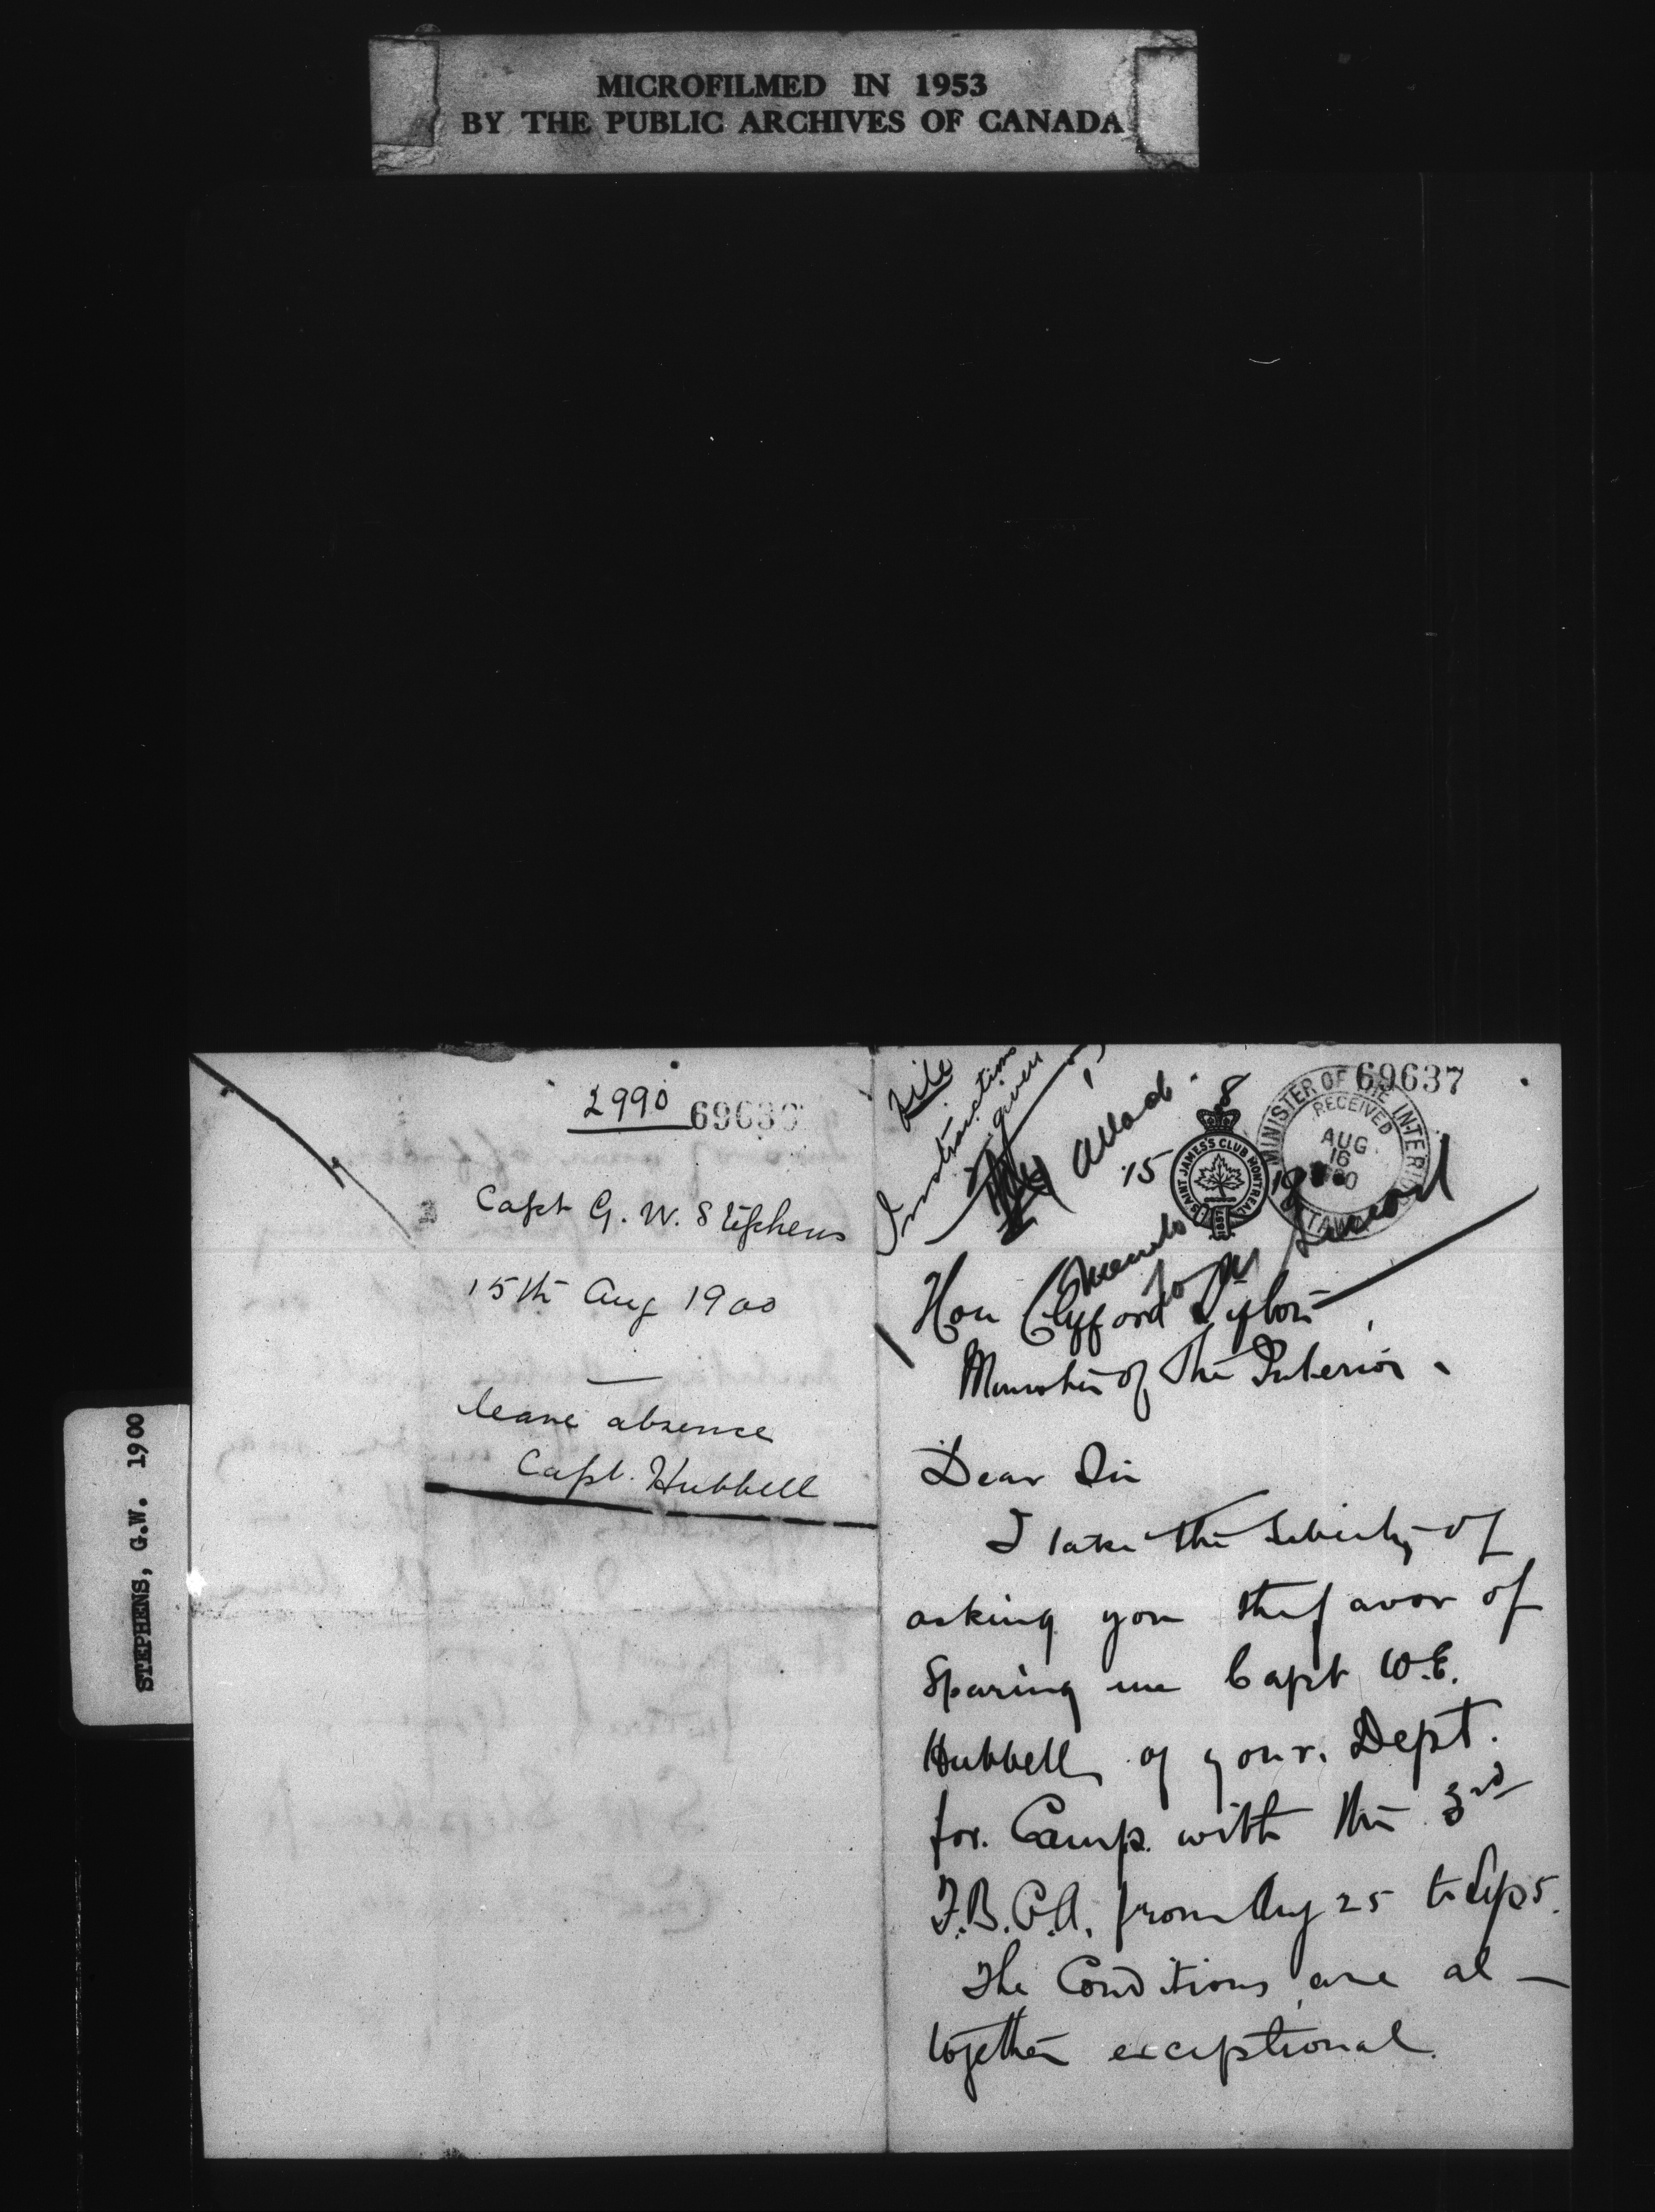 MICROFILMED IN 1953
BY THE PUBLIC ARCHIVES OF CANADA
STEPHENS, G.W. 1900
2990
Capt G. W. Stephens
15th Aug 1900
leave absence
Capt. Hubbell
File
Instructions
given
69637
MINISTER OF THE INTERIOR
RECEIVED
AUG
16
SAINT JAMES'S CLUB MONTREAL
1857
15
8
Hon Clifford Sifton
Minister of the Interior
Dear Sir
I take the liberty of
asking you the favor of
sparing me Capt W.E.
Hubbell of your Dept.
for Camp with the 3rd
F.B.C.A. from Aug 25 to Sep 5.
The Conditions are al-
together exceptional.